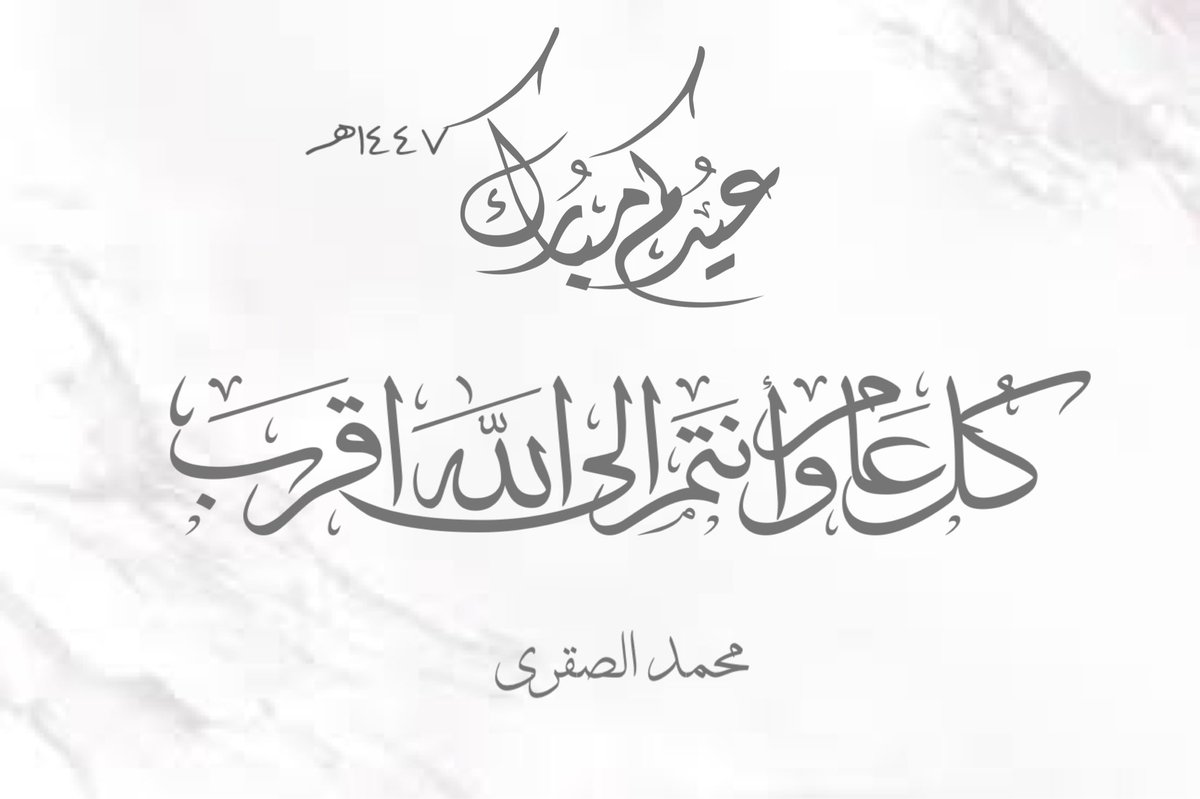 عيدكم مبارك ١٤٤٧هـ
كل عام وأنتم إلى الله اقرب
محمد الصقرى